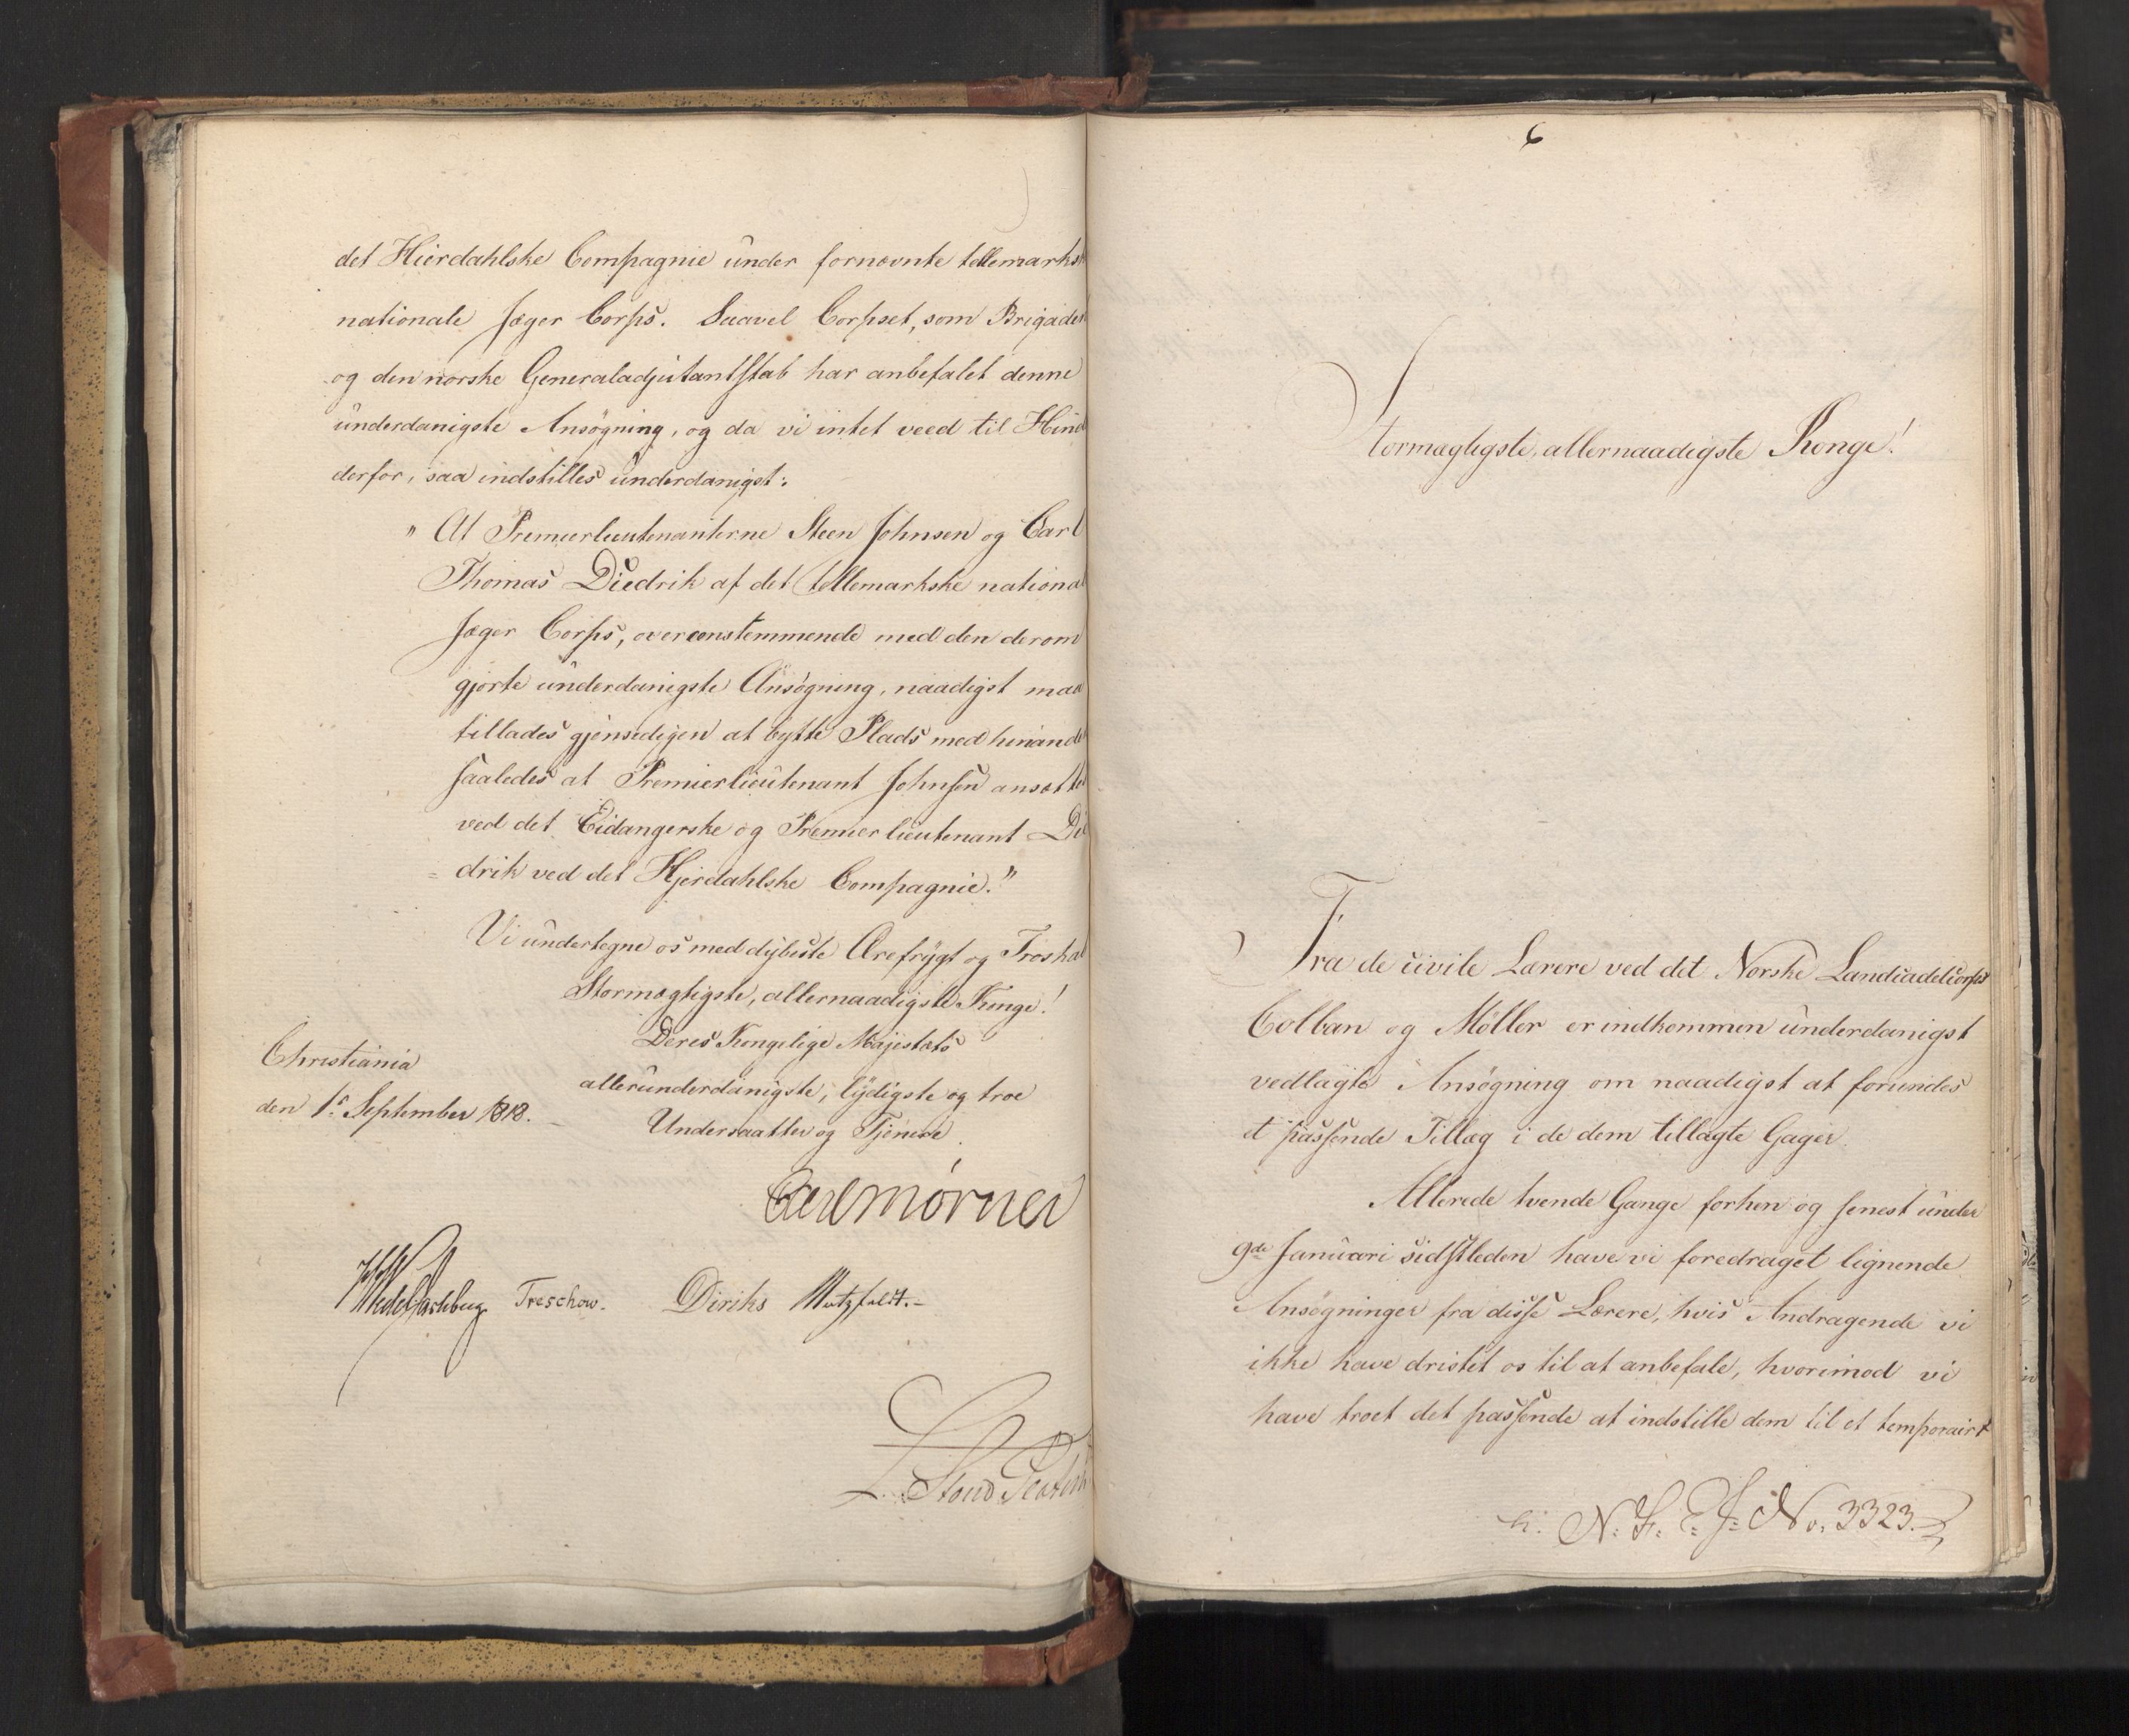 det Hierdahlske Compagnie under fornævnte tellemarksk
nationale Jæger Corps. Saavel Corpset, som Brigaden
og den norske Generaladjutantstab har anbefalet denne
underdanigste Ansøgning, og da vi intet veed til Hind
derfor, saa indstilles underdanigst:
" At Premierlieutenanterne Steen Johnsen og Carl
Thomas Diedrik af det tellemarkske national
Jæger Corps, overeenstemmende med den derom
gjorte underdanigste Ansøgning, naadigst maa
tillades gjensidigen at bytte Plads med hinande
saaledes at Premierlieutenant Johnsen ansættes
ved det Eidangerske og Premierlieutenant Di
= drik ved det Hjerdahlske Compagnie."
Vi undertegne os med dybeste Ærefrygt og Troska
Stormægtigste, allernaadigste Konge!
Deres Kongelige Majestæts
allerunderdanigste, lydigste og troe
Undersaatter og Tjenere
Christiania
den 1ste September 1818.
Carl Mörner
Wedel Jarlsberg Treschow. Diriks Motzfeldt.
L. Stoud Platou
6
Stormægtigste, allernaadigste Konge!
Fra de civile Lærere ved det Norske Landcadetcorps
Colban og Møller er indkommen underdanigst
vedlagte Ansøgning om naadigst at forundes
et passende Tillæg i de dem tillagte Gager.
Allerede tvende Gange forhen og senest under
9de Januari sidstleden have vi foredraget lignende
Ansøgninger fra disse Lærere, hvis Andragende vi
ikke have dristet os til at anbefale, hvorimod vi
have troet det passende at indstille dem til et temporairt
N: F: E: J: No. 3323.